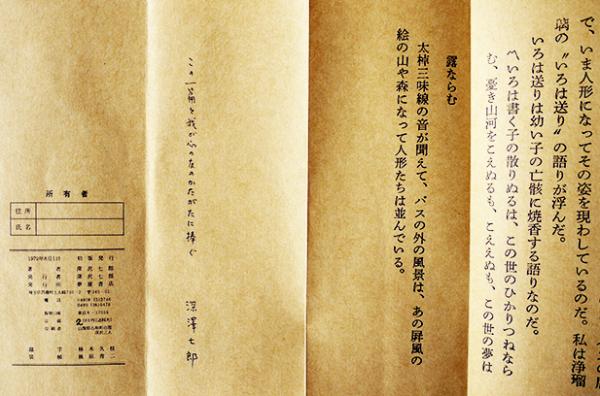 で、いま人形になってその姿を現わしているのだ。私は浄瑠
璃の〝いろは送り〟の語りが浮んだ。
いろは送りは幼い子の亡骸に焼香する語りなのだ。
〽いろは書く子の散りぬるは、この世のひかりつねなら
む、憂き山河をこえぬるも、こええぬも、この世の夢は
露ならむ
太棹三味線の音が聞えて、バスの外の風景は、あの屏風の
絵の山や森になって人形たちは並んでいる。
この一冊を我が心の友のかたがたに捧ぐ
深澤七郎
所有者
住所
氏名
初版発行
著者 深沢七郎
発行者 深沢七郎
発行所 夢屋書店